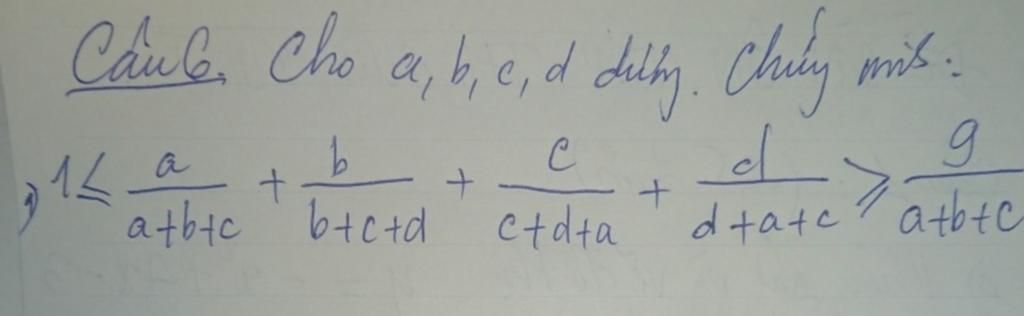 Câu 6. Cho a, b, c, d dương. Chứng minh:
, 1 ≤ a/(a+b+c) + b/(b+c+d) + c/(c+d+a) + d/(d+a+c) ≥ 9/(a+b+c)